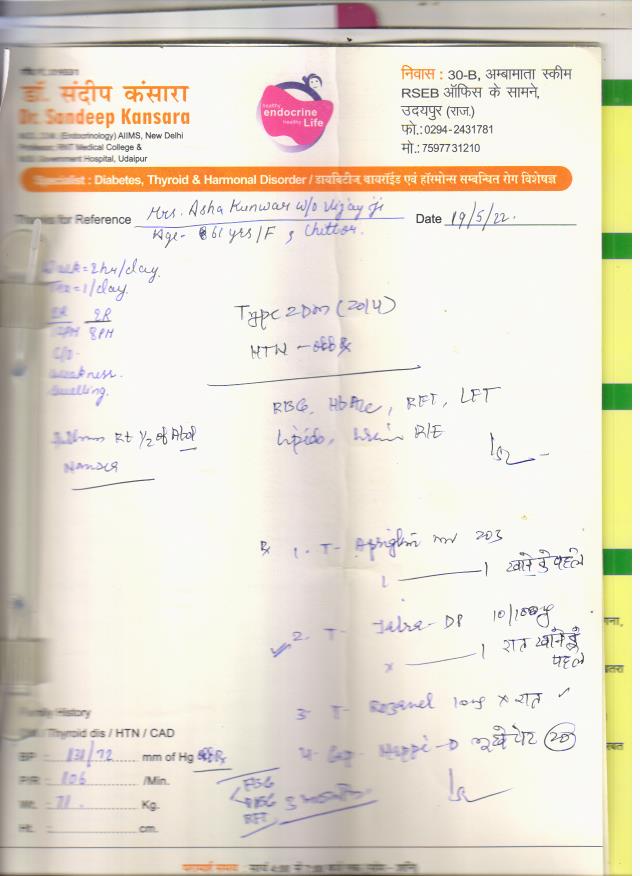 डॉ. संदीप कंसारा
Dr. Sandeep Kansara
(Endocrinology) AIIMS, New Delhi
Professor, RNT Medical College &
Government Hospital, Udaipur
healthy
endocrine
healthy Life
निवास : 30-B, अम्बामाता स्कीम
RSEB ऑफिस के सामने,
उदयपुर (राज.)
फो.:0294-2431781
मो.:7597731210
Specialist : Diabetes, Thyroid & Harmonal Disorder / डायबिटीज, थायरॉईड एवं हॉरमोन्स सम्बन्धित रोग विशेषज्ञ
Thanks for Reference Mrs. Asha Kunwar w/o Vijay ji
Date 19/5/22.
Age- 61 yrs/F, Chittor.
Walk=2hr/day.
Tea=1/day.
8PM
C/O-
weakness.
Swelling.
Type 2 DM (2014)
HTN - off Rx
RBG, HbA1c, RFT, LFT
Lipids, Urine R/E
Rt 1/2 of Abd
Nausea
Rx 1. T- 203
1 1 खाने के पहले
2. T- Jabra-DP 10/100mg
x 1 रात खाने के पहले
3- T- Rozanel 10mg x रात
4- Cap- Happi-D भूखे पेट (20)
Family History
DM / Thyroid dis / HTN / CAD
BP : 131/72 mm of Hg off Rx
P/R : 106 /Min.
Wt. : 71 Kg.
Ht. : cm.
FBG
PPBG
RFT
3 months